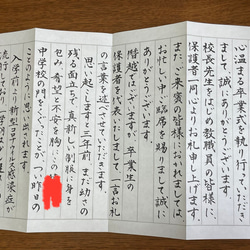 心温まる卒業式を執り行っていただき
まして誠にありがとうございます。
校長先生をはじめ教職員の皆様に、
保護者一同心よりお礼申し上げます。
また、来賓の皆様におかれましては、
お忙しい中ご臨席を賜りまして誠に
ありがとうございます。
僭越ではございますが、卒業生の
保護者を代表いたしまして一言お礼
の言葉を述べさせていただきます。
思い起こしますと三年前、まだ幼さの
残る面立ちで、真新しい制服に身を
包み、希望と不安を胸に
中学校の門をくぐった日がつい昨日の
ことのように思い出されます。
入学前から新型コロナウイルス感染症が